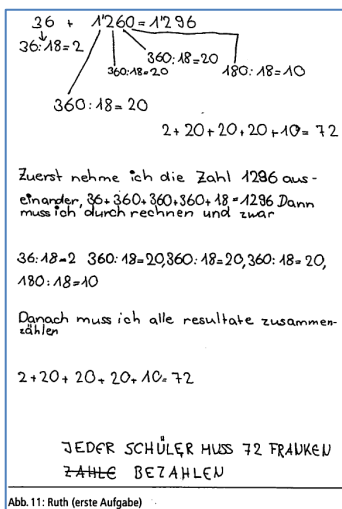 36 + 1'260 = 1'296
36:18=2
360:18=20
360:18=20
180:18=10
360:18=20
2+20+20+20+10=72
Zuerst nehme ich die Zahl 1296 aus-
einander, 36+360+360+360+18=1296 Dann
muss ich durch rechnen und zwar
36:18=2 360:18=20,360:18=20,360:18=20,
180:18=10
Danach muss ich alle resultate zusammen-
zählen
2+20+20+20+10=72
JEDER SCHÜLER MUSS 72 FRANKEN
ZAHLE BEZAHLEN
Abb. 11: Ruth (erste Aufgabe)